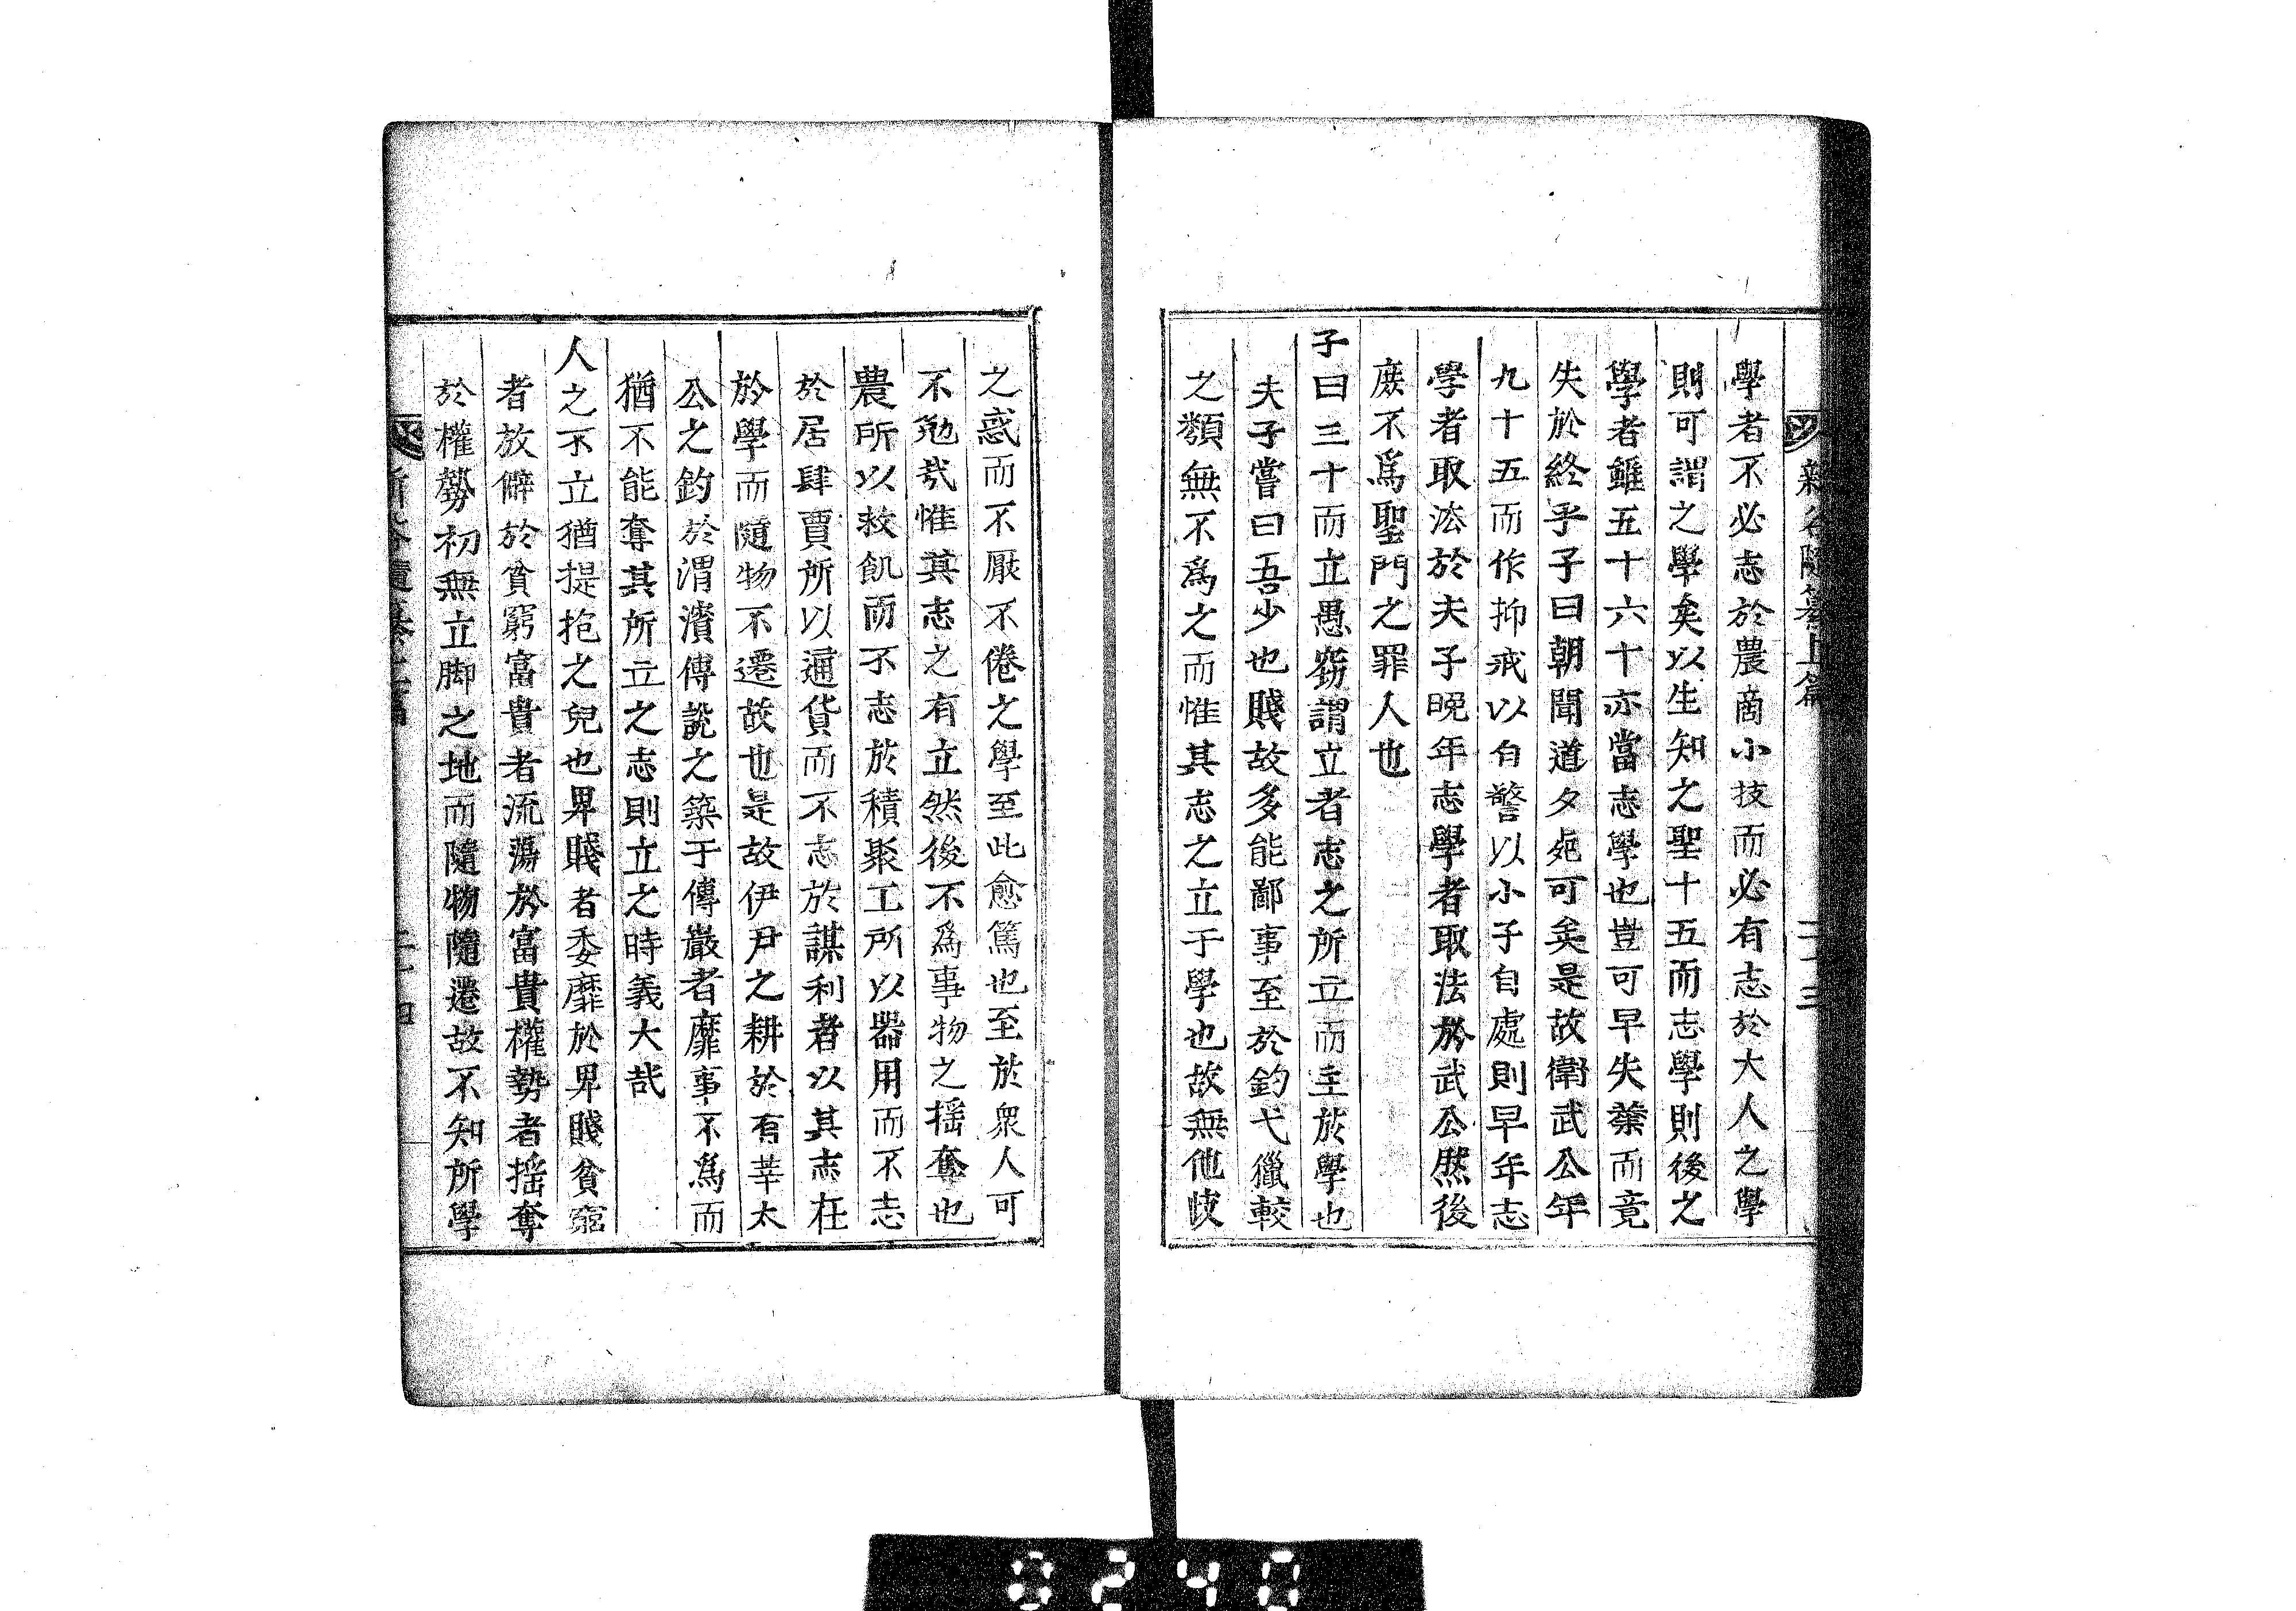 新谷隨纂上篇 二十三
學者不必志於農商小技而必有志於大人之學
則可謂之學矣以生知之聖十五而志學則後之
學者雖五十六十亦當志學也豈可早失業而竟
失於終乎子曰朝聞道夕死可矣是故衛武公年
九十五而作抑戒以自警以小子自處則早年志
學者取法於夫子晚年志學者取法於武公然後
庶不爲聖門之罪人也
子曰三十而立愚窃謂立者志之所立而主於學也
夫子嘗曰吾少也賤故多能鄙事至於釣弋獵較
之類無不爲之而惟其志之立于學也故無他歧
之惑而不厭不倦之學至此愈篤也至於衆人可
不勉㢤惟其志之有立然後不爲事物之揺奪也
農所以救飢而不志於積聚工所以器用而不志
於居肆賈所以通貨而不志於謀利者以其志在
於學而隨物不遷故也是故伊尹之耕於有莘太
公之釣於渭濱傅說之築于傅巖者靡事不爲而
猶不能奪其所立之志則立之時義大哉
人之不立猶提抱之兒也卑賤者委靡於卑賤貧窮
者放僻於貧窮富貴者流蕩於富貴權勢者揺奪
於權勢初無立脚之地而隨物隨遷故不知所學
二十四
0240